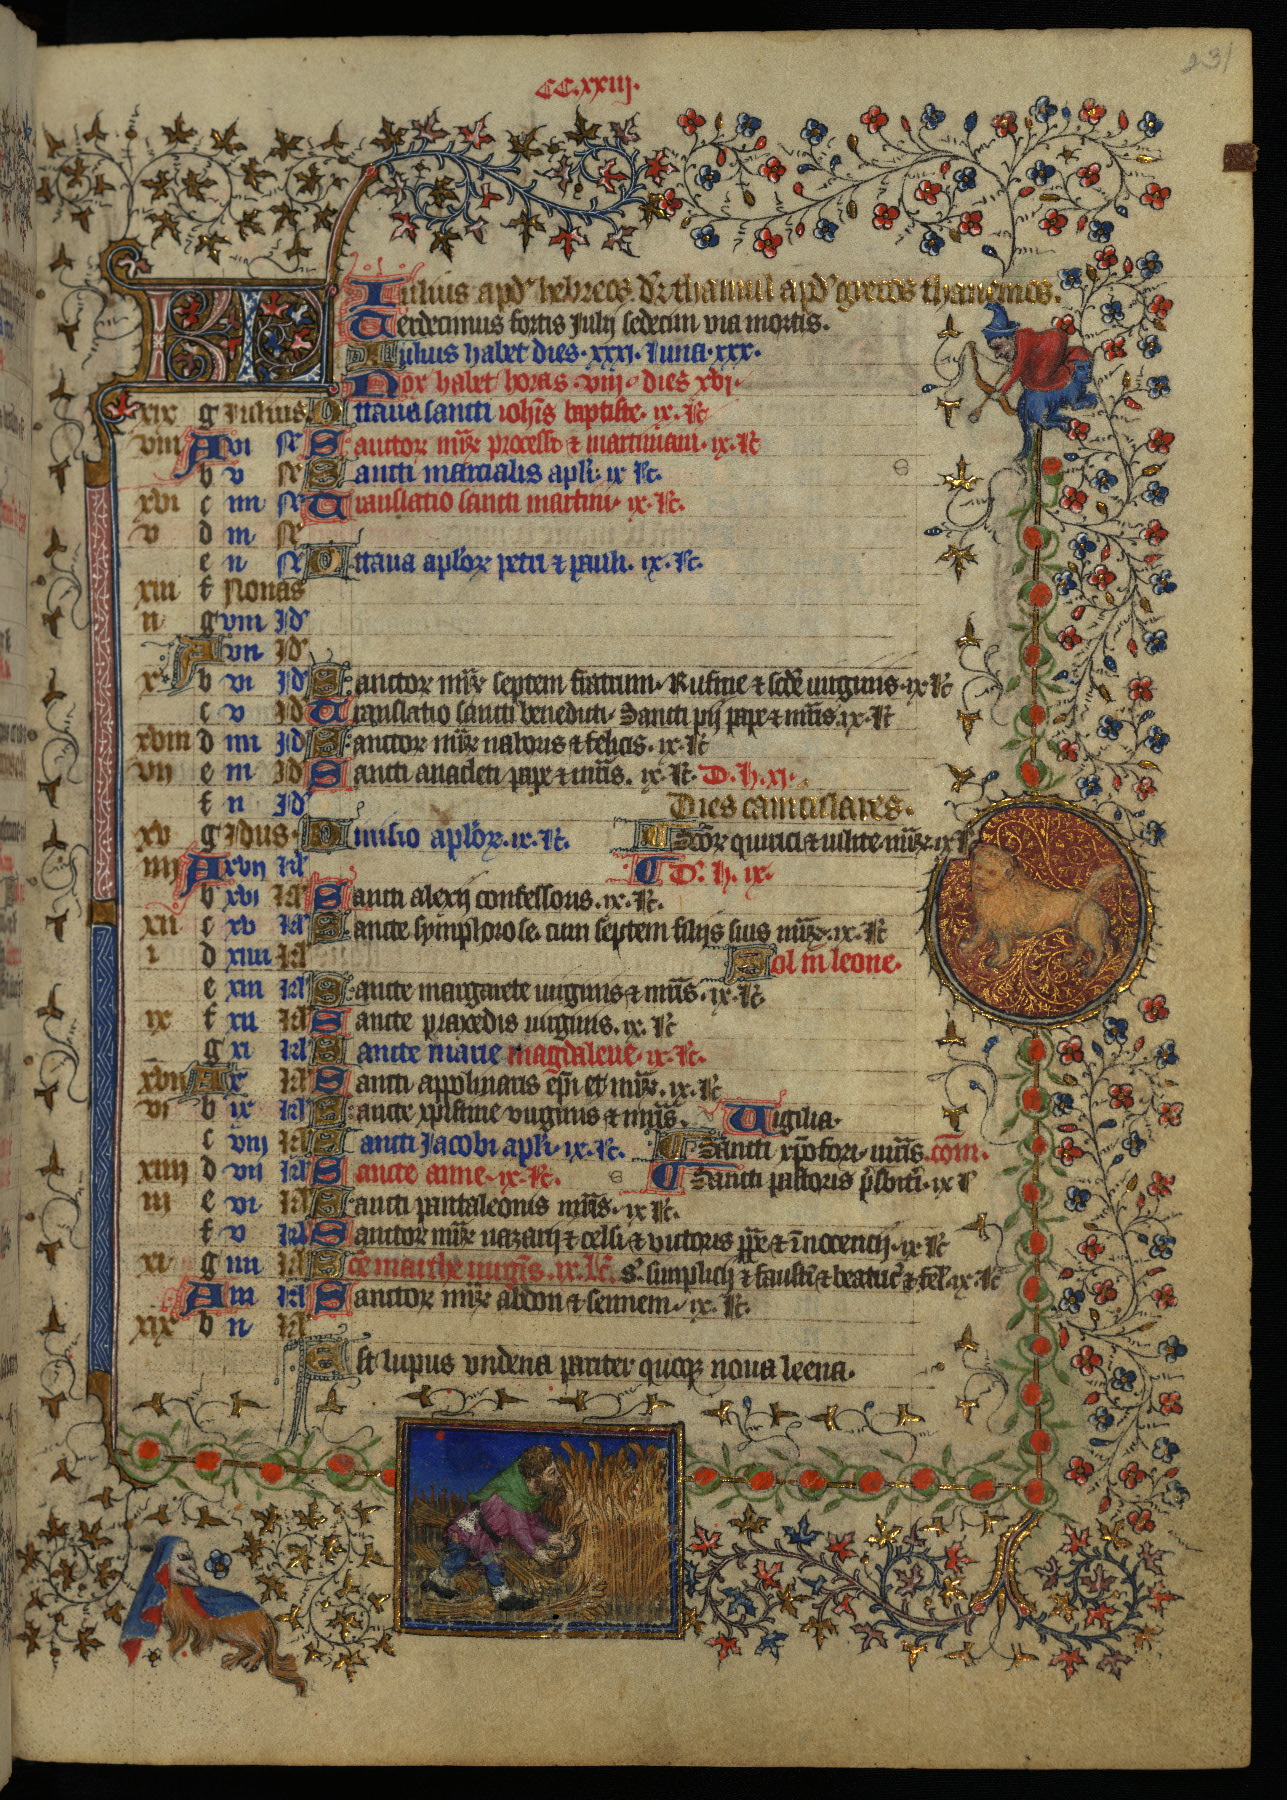 231
CC.xxiij.
KL Iulius apd' hebreos. dr thamul apd' grecos thanemos.
Terdecimus fortis Julij sedecim via mortis.
Iulius habet dies. xxxi. luna. xxx.
Nox habet horas viij. dies xvi.
xix g Iulius. Octaua sancti iohis baptiste. ix. lc
viij A vi N Sanctor mr processi & martiniani. ix. lc
b v N Sancti marcialis apli. ix lc.
xvi c iiij N Translatio sancti martini. ix. lc.
v d iij N
e ij N Octaua aplor petri & pauli. ix. lc.
xiij f Nonas
ij g viij Id'
A vij Id'
x b vi Id' Sanctor mr septem fratrum. Rufine & scde uirginis. ix lc
c v Id Translatio sancti benedicti. Sancti pij pape & mris. ix. lc
xviij d iiij Id Sanctor mr naboris & felicis. ix. lc
vij e iij Id Sancti anacleti pape & mris. ix. lc. D. h. xi.
f ij Id' Dies caniculares.
xv g Idus. Diuisio aplor. ix. lc. Scor quirici & iulite mr. ix lc
iiij A xvij kl D. h. ix.
b xvi kl Sancti alexij confessoris. ix. lc.
xij c xv kl Sancte symphorose. cum septem filijs suis mr. ix. lc
i d xiiij kl Sol in leone.
e xiij kl Sancte margarete uirginis & mris. ix. lc
ix f xij kl Sancte praxedis uirginis. ix. lc
g xi kl Sancte marie magdalene. ix. lc.
xvij A x kl Sancti appolinaris epi et mr. ix. lc
vi b ix kl Sancte xpistine virginis & mris. Vigilia.
c viij kl Sancti Jacobi apli. ix. lc. Sancti xpofori. mris. com.
xiiij d vij kl Sancte anne. ix. lc. Sancti pastoris prbri. ix l
iij e vi kl Sancti pantaleonis mris. ix lc.
f v kl Sanctor mr nazarij & celsi & victoris pp & inocencij. ix lc
xi g iiij kl Sce marthe uirgis. ix. lc. s. simplicij & fausti & beatric & fel. ix. lc
A iij kl Sanctor mr abdon & sennem. ix. lc.
xix b ij kl
Est lupus vndena pariter quoq nona leena.